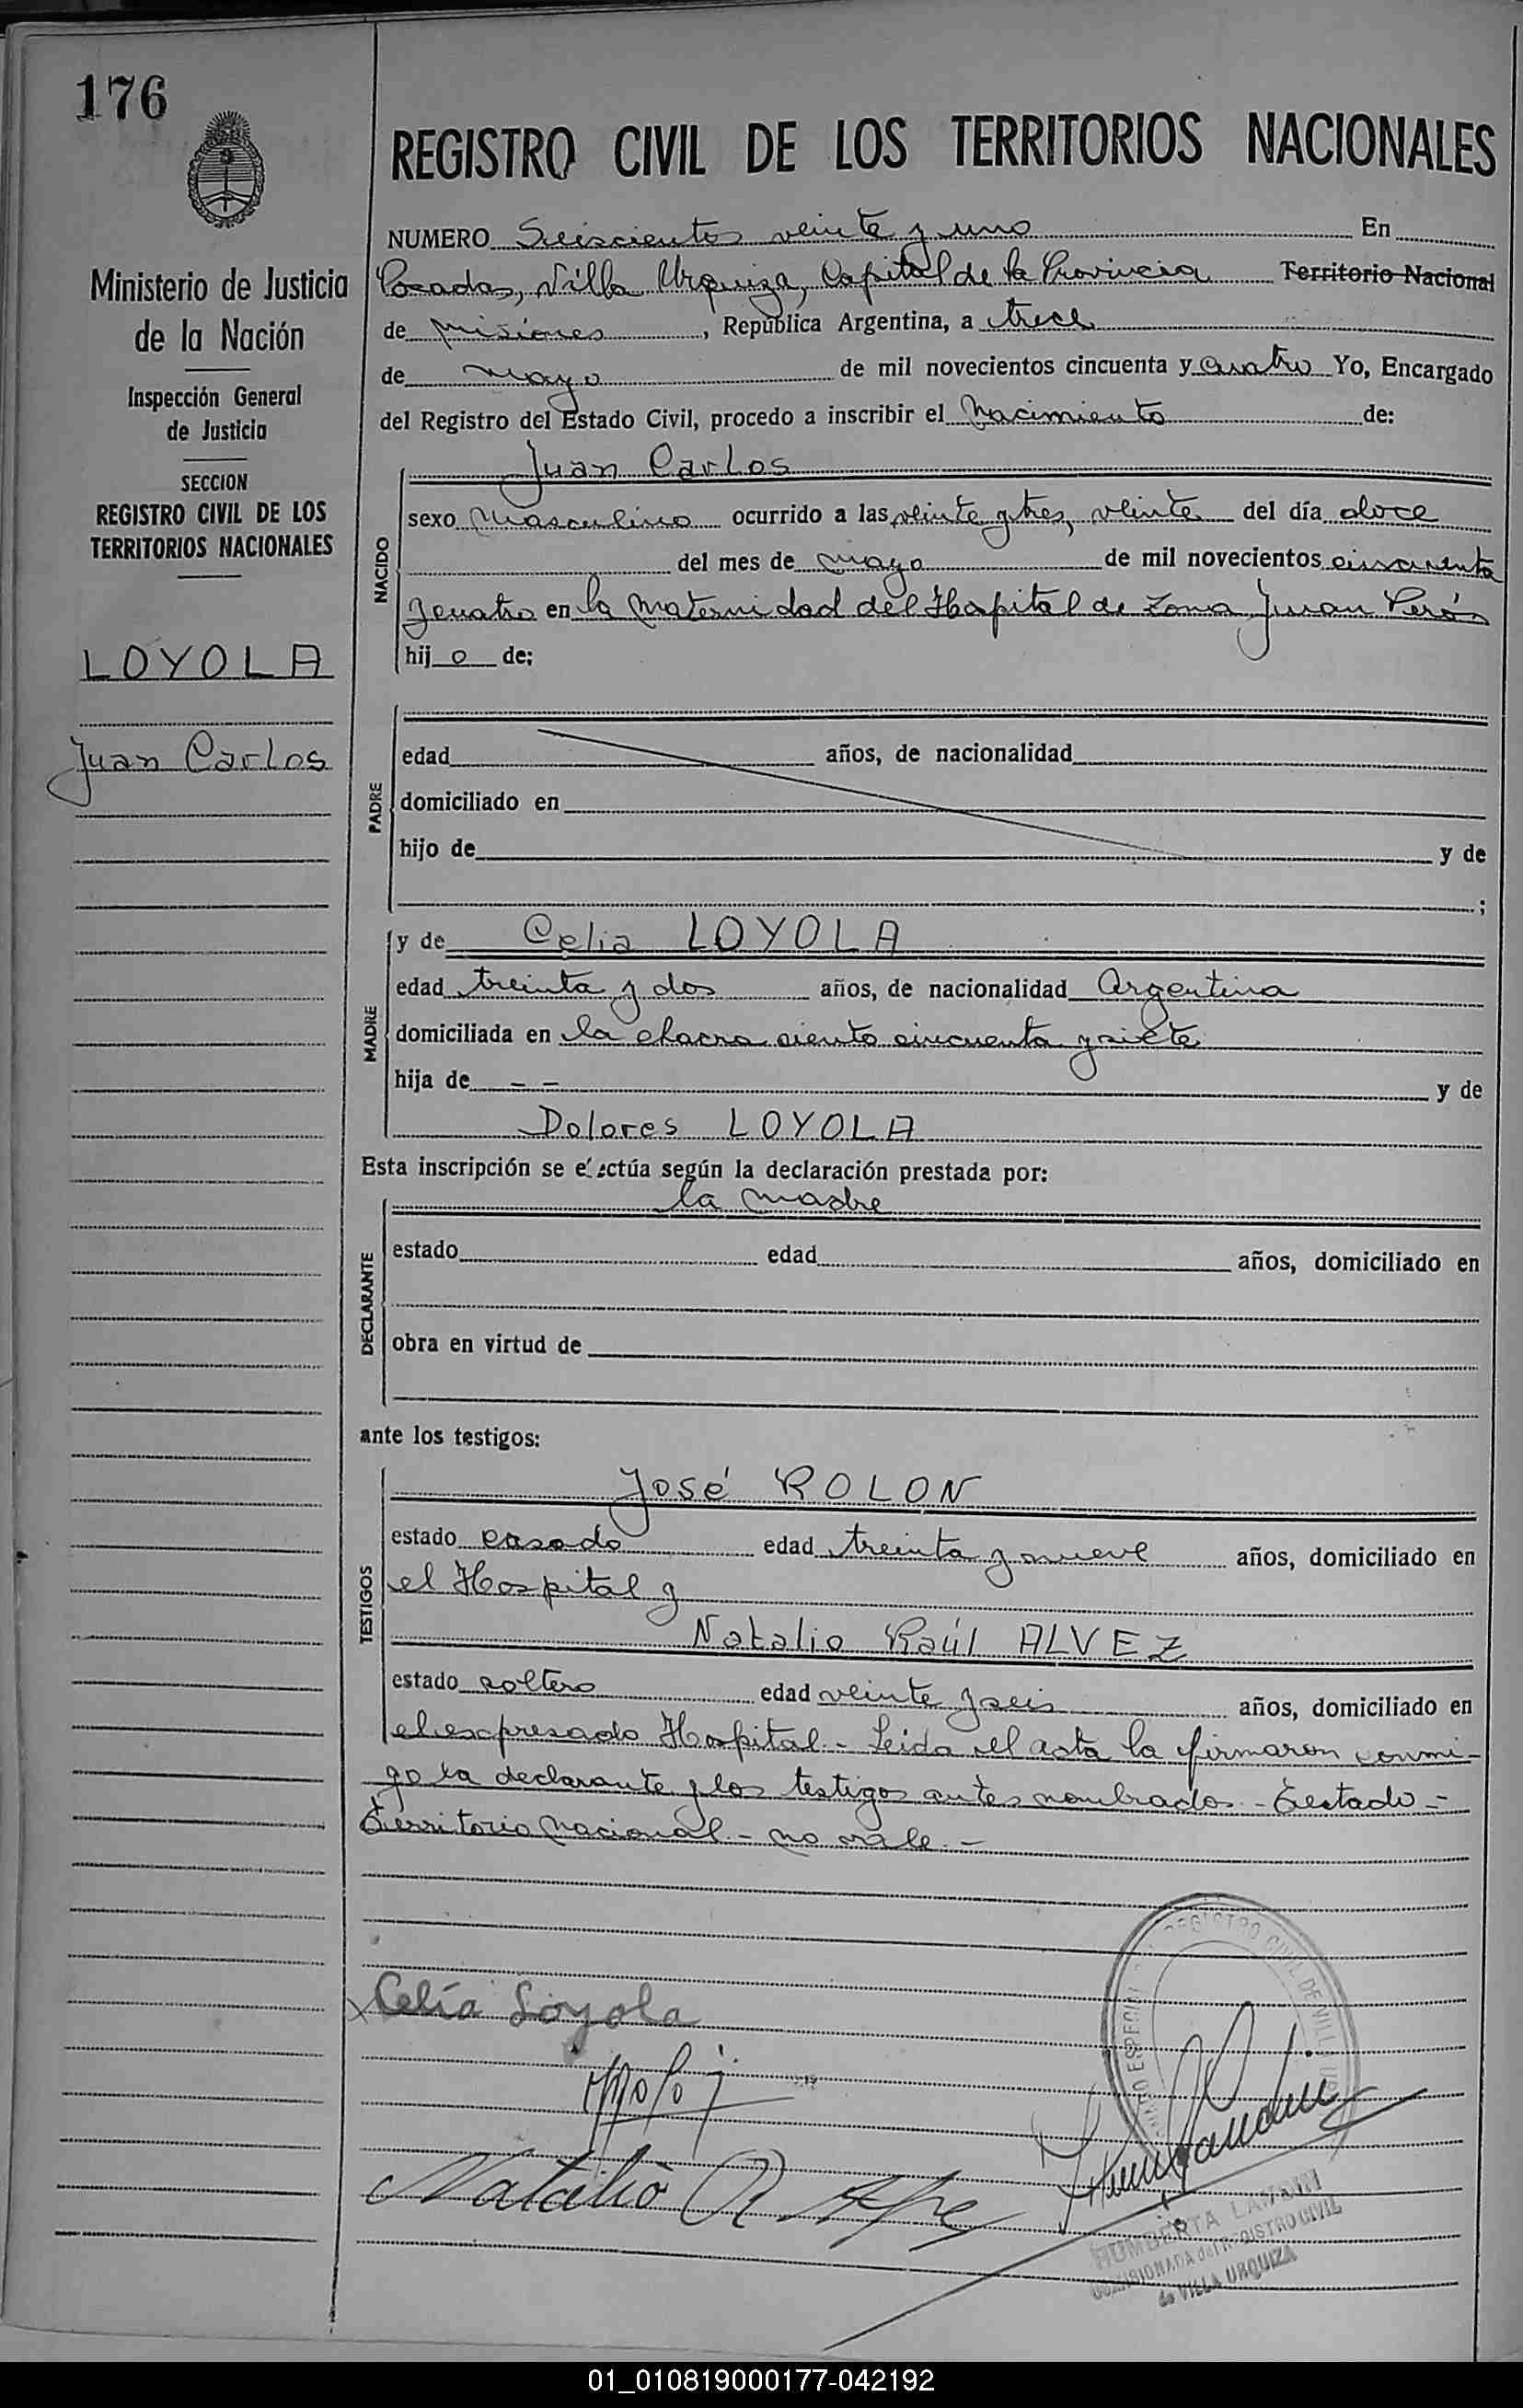 176
REGISTRO CIVIL DE LOS TERRITORIOS NACIONALES
Ministerio de Justicia
de la Nación
Inspección General
de Justicia
SECCION
REGISTRO CIVIL DE LOS
TERRITORIOS NACIONALES
LOYOLA
Juan Carlos
NUMERO Seiscientos veinte y uno En
Posadas, Villa Urquiza, Capital de la Provincia Territorio Nacional
de Misiones, República Argentina, a trece
de mayo de mil novecientos cincuenta y cuatro Yo, Encargado
del Registro del Estado Civil, procedo a inscribir el Nacimiento de:
NACIDO
Juan Carlos
sexo Masculino ocurrido a las veinte y tres, veinte del día doce
del mes de mayo de mil novecientos cincuenta
y cuatro en la Maternidad del Hospital de Zona Juan Perón
hijo de:
PADRE
edad años, de nacionalidad
domiciliado en
hijo de y de
;
MADRE
y de Celia LOYOLA
edad treinta y dos años, de nacionalidad Argentina
domiciliada en la chacra ciento cincuenta y siete
hija de - - y de
Dolores LOYOLA
Esta inscripción se efectúa según la declaración prestada por:
DECLARANTE
la madre
estado edad años, domiciliado en
obra en virtud de
ante los testigos:
TESTIGOS
José ROLON
estado casado edad treinta y nueve años, domiciliado en
el Hospital y
Natalio Raúl ALVEZ
estado soltero edad veinte y seis años, domiciliado en
el expresado Hospital.- Leida el acta la firmaron conmi-
go la declarante y los testigos antes nombrados.- Testado.-
Territorio Nacional.- no vale.-
Celía Loyola
Natalio R
REGISTRO CIVIL DE VILLA
ESPECIAL
HUMBERTA LANDINI
COMISIONADA del REGISTRO CIVIL
de VILLA URQUIZA
01_010819000177-042192